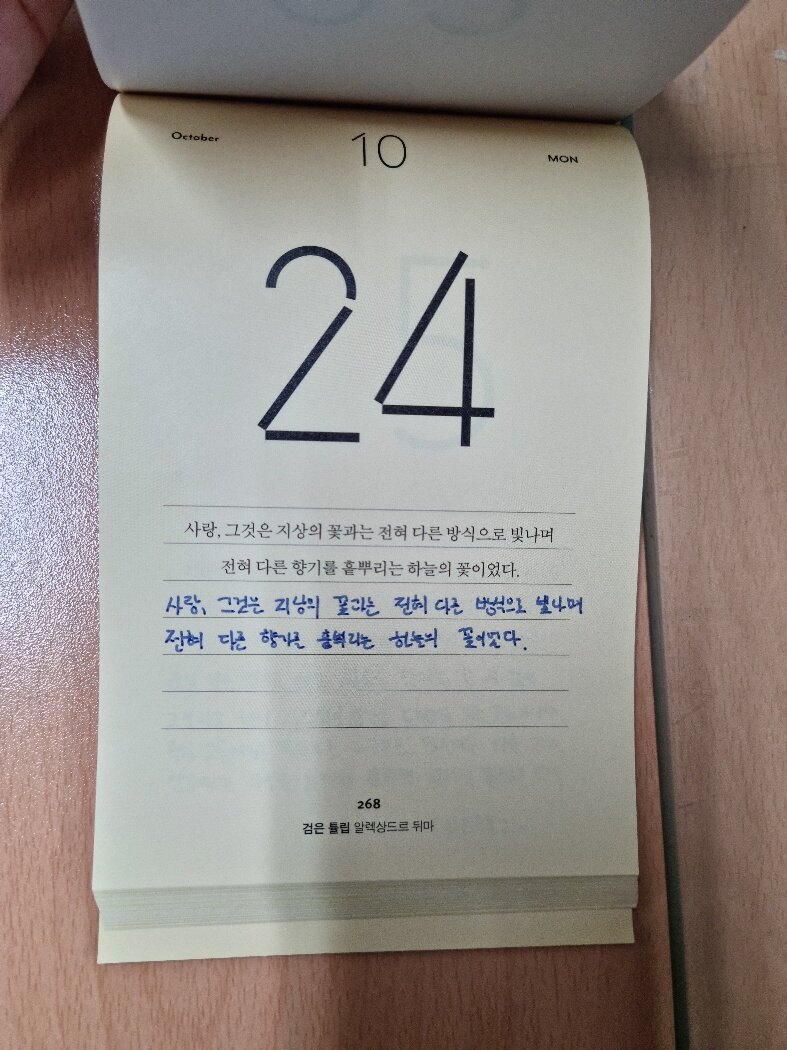 October 10 MON
24
사랑, 그것은 지상의 꽃과는 전혀 다른 방식으로 빛나며
전혀 다른 향기를 흩뿌리는 하늘의 꽃이었다.
사랑, 그것은 지상의 꽃과는 전혀 다른 방식으로 빛나며
전혀 다른 향기를 흩뿌리는 하늘의 꽃이었다.
268
검은 튤립 알렉상드르 뒤마